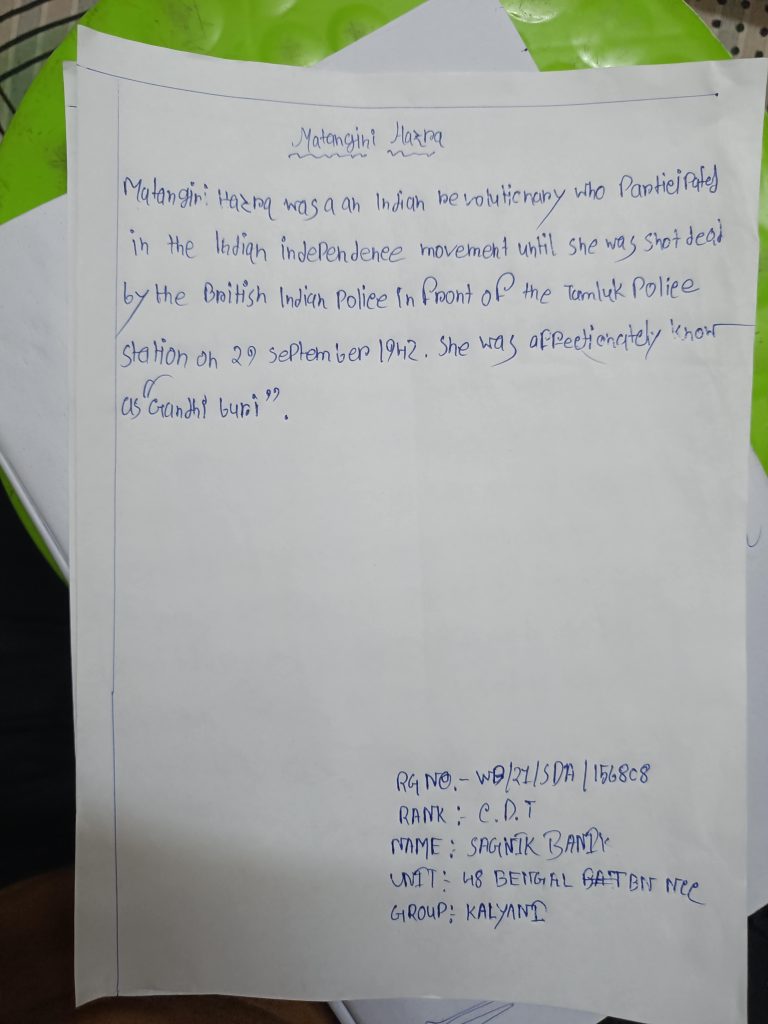 Matangini Hazra
Matangini Hazra was a an Indian revolutionary who Participated
in the Indian independence movement until she was shot dead
by the British Indian Police in front of the Tamluk Police
station on 29 september 1942. She was affectionately know
as "Gandhi buri".
RG NO.- WB/21/SDA/156808
RANK :- C.D.T
NAME : SAGNIK BANIK
UNIT:- 48 BENGAL BN NCC
GROUP:- KALYANI